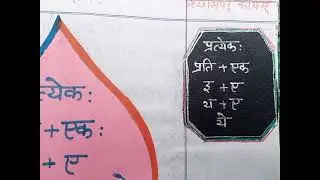 प्रत्येक:
प्रति + एक
इ + ए
य + ए
ये
त्येक:
+ एक:
+ ए